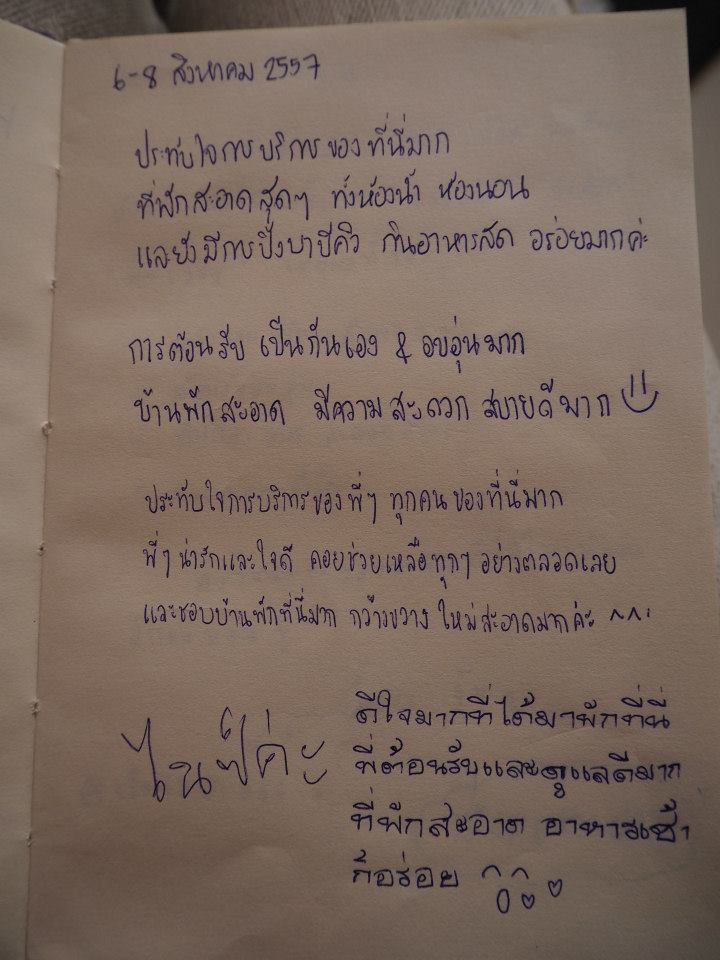 6-8 สิงหาคม 2557
ประทับใจการบริการของที่นี่มาก
ที่พักสะอาดสุดๆ ทั้งห้องน้ำ ห้องนอน
และยังมีการปิ้งบาบีคิว กินอาหารสด อร่อยมากค่ะ
การต้อนรับ เป็นกันเอง & อบอุ่นมาก
บ้านพักสะอาด มีความสะดวก สบายดีมาก
ประทับใจการบริการของพี่ๆ ทุกคนของที่นี่มาก
พี่ๆ น่ารักและใจดี คอยช่วยเหลือทุกๆ อย่างตลอดเลย
และชอบบ้านพักที่นี่มาก กว้างขวาง ใหม่สะอาดมากค่ะ ^^
ดีใจมากที่ได้มาพักที่นี่
พี่ต้อนรับและดูแลดีมาก
ที่พักสะอาด อาหารเช้า
ก็อร่อย